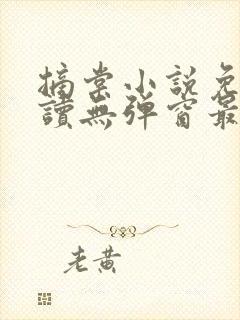 摘棠小說免
讀無彈窗最
老黃